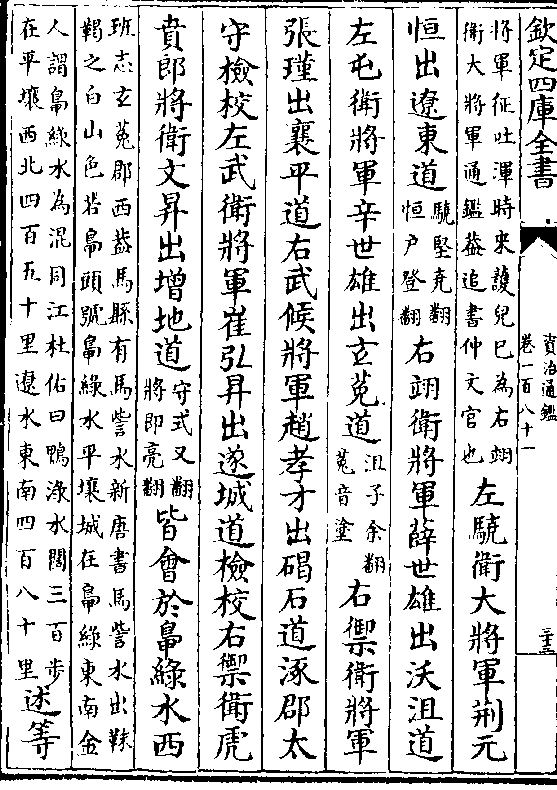 欽定四庫全書
資治通鑑
卷一百八十一
將軍征吐渾時來護兒已為右翊
衛大將軍通鑑蓋追書仲文官也
左驍衛大將軍荆元
恒出遼東道
驍堅尭翻
恒户登翻
右翊衛將軍薛世雄出沃沮道
左屯衛將軍辛世雄出玄菟道
沮子余翻
菟音塗
右禦衛將軍
張瑾出襄平道右武候將軍趙孝才出碣石道涿郡太
守檢校左武衛將軍崔弘昇出遂城道檢校右禦衛虎
賁郎將衛文昇出增地道
守式又翻
將即亮翻
皆會於鴨綠水西
班志玄菟郡西蓋馬縣有馬訾水新唐書馬訾水出靺
鞨之白山色若鴨頭號鴨綠水平壤城在鴨綠東南金
人謂鴨綠水為混同江杜佑曰鴨淥水闊三百步
在平壤西北四百五十里遼水東南四百八十里
述等